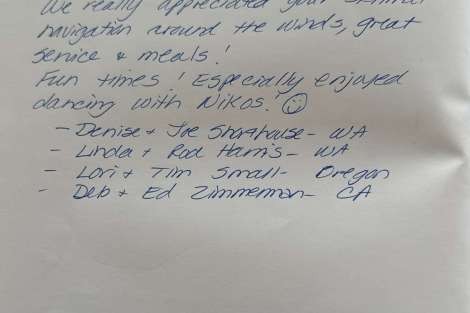 We really appreciated your skillful
navigation around the winds, great
service & meals!
Fun times! Especially enjoyed
dancing with Nikos! ☺
- Denise + Joe Shorthouse - WA
- Linda + Rod Harris - WA
- Lori + Tim Small - Oregon
- Deb + Ed Zimmerman - CA